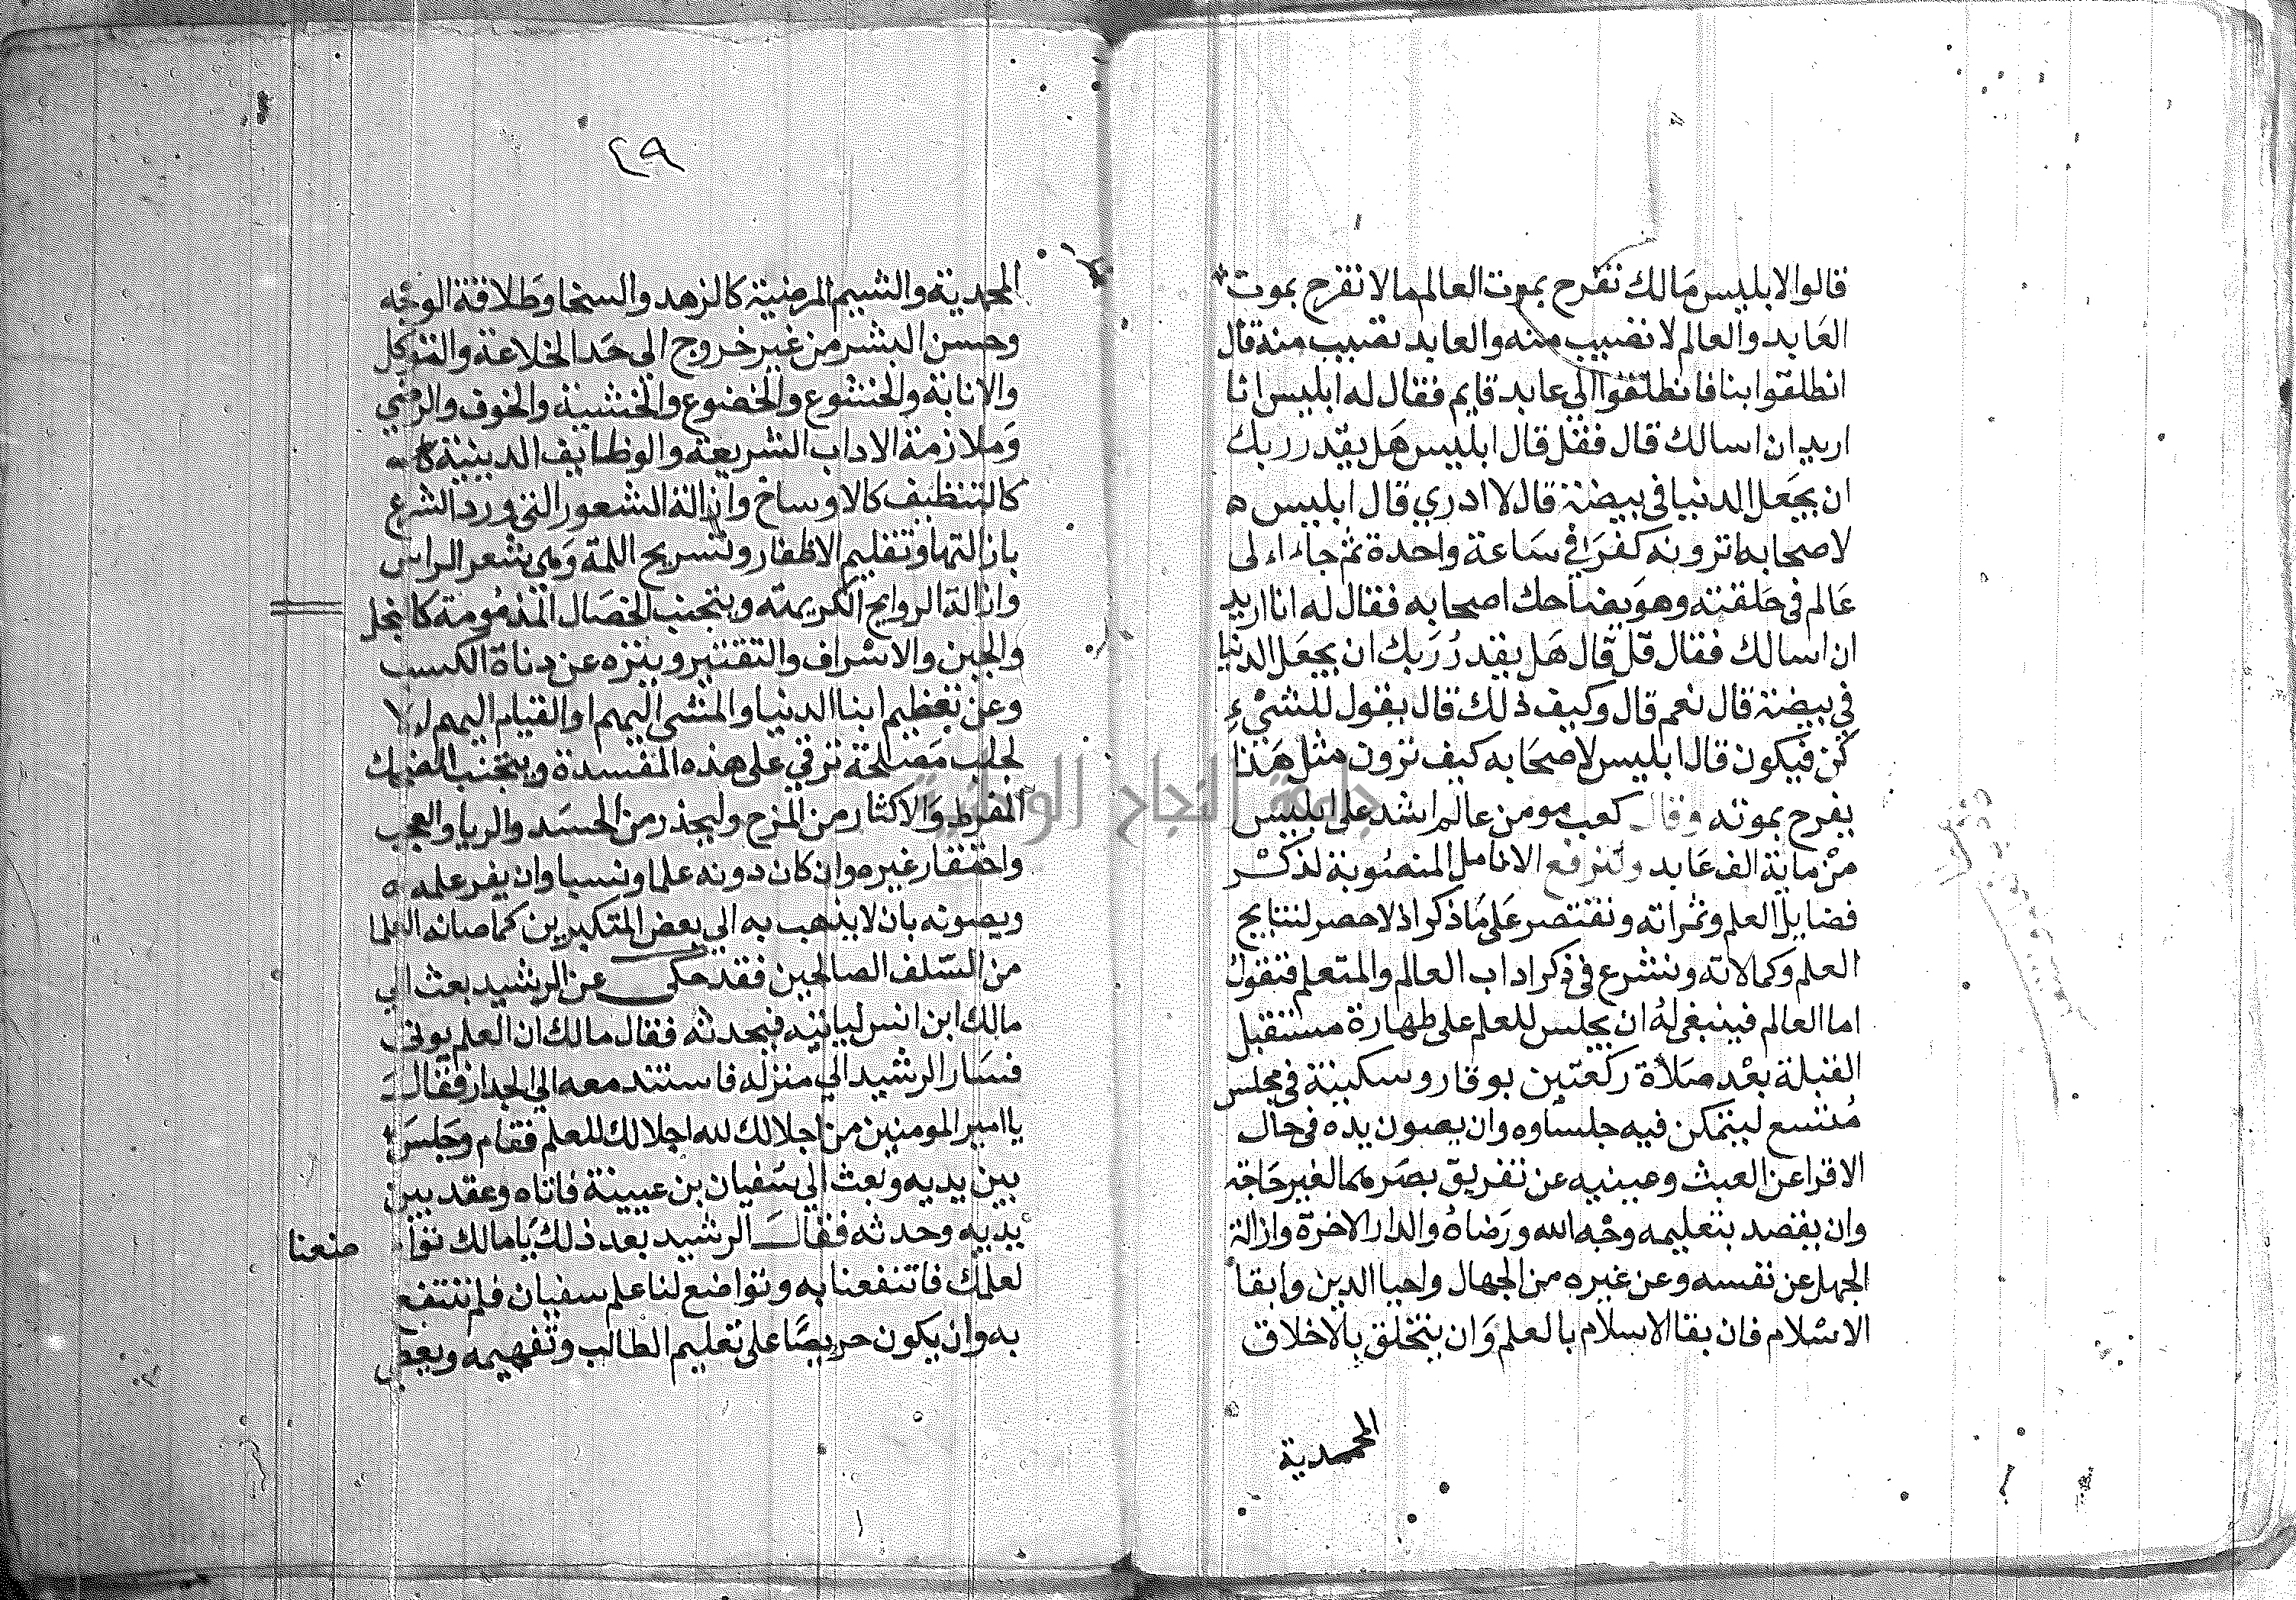 قالوا لابليس مالك تفرح بموت العالم مالا تفرح بموت
العابد والعالم لا نصيب منه والعابد نصيب منه قال
انطلقوا بنا فانطلقوا الي عابد قايم فقال له ابليس انا
اريد ان اسالك قال فقل قال ابليس هل يقدر ربك
ان يجعل الدنيا في بيضة قال لا ادري قال ابليس ه
لاصحابه اترونه كفر في ساعة واحدة ثم جاء الى
عالم في حلقته وهو يضاحك اصحابه فقال له انا اريد
ان اسالك فقال قل قال هل يقدر ربك ان يجعل الدنيا
في بيضة قال نعم قال وكيف ذلك قال يقول للشيء
كن فيكون قال ابليس لاصحابه كيف ترون مثل هذا
يفرح بموته وقال كعب مومن عالم اشد على ابليس
من ماية الف عابد ولنرفع الانامل المنصوبة لذكر
فضايل العلم وثمراته ونقتصر على ما ذكر اذ لا حصر لنتايج
العلم وكمالاته ونشرع في ذكر اداب العالم والمتعلم فنقول
اما العالم فينبغي له ان يجلس للعلم على طهارة مستقبل
القبلة بعد صلاة ركعتين بوقار وسكينة في مجلس
متسع ليتمكن فيه جلساوه وان يصون يده في حال
الاقرا عن العبث وعينيه عن تفريق بصره مما لغير حاجة
وان يقصد بتعليمه وجه الله ورضاه والدار الاخرة وازالة
الجهل عن نفسه وعن غيره من الجهال واحيا الدين وابقا
الاسلام فان بقا الاسلام بالعلم وان يتخلق بالاخلاق
المحمدية
٢٩
المحمدية والشيم المرضية كالزهد والسخا وطلاقة الوجه
وحسن البشر من غير خروج الى حد الخلاعة والتوكل
والانابة والخشوع والخضوع والخشية والخوف والرضي
وملازمة الاداب الشريعة والوظايف الدينية
كالتنظيف كالاوساخ وازالة الشعور التي ورد الشرع
بازالتها وتقليم الاظفار وتسريح اللمة وهى شعر الراس
وازالة الروايح الكريهة ويتجنب الخصال المذمومة كالبخل
والجبن والاسراف والتقتير ويتنزه عن دناة الكسب
وعن تعظيم ابنا الدنيا والمشى اليهم او القيام اليهم لا
لجلب مصلحة ترقي على هذه المفسدة ويتجنب الضحك
المفرط والاكثار من المزح وليحذر من الحسد والريا والعجب
واحتقار غيره وان كان دونه علما ونسبا وان يفر علمه ه
ويصونه بان لا يذهب به الي بعض المتكبرين كما صانه العلما
من السلف الصالحين فقد حكى عن الرشيد بعث الي
مالك ابن انس لياتيه فيحدثه فقال مالك ان العلم يوتى
فسار الرشيد الي منزله فاستند معه الي الجدار فقال
يا امير المومنين من اجلالك لله اجلالك للعلم فقام وجلس
بين يديه وبعث الي سفيان بن عيينة فاتاه وقعد بين
يديه وحدثه فقال الرشيد بعد ذلك يا مالك تواضعنا
لعلمك فانتفعنا به وتواضع لنا علم سفيان فلم ننتفع
به وان يكون حريصا على تعليم الطالب وتفهيمه وبعض
جامعة النجاح الوطنية